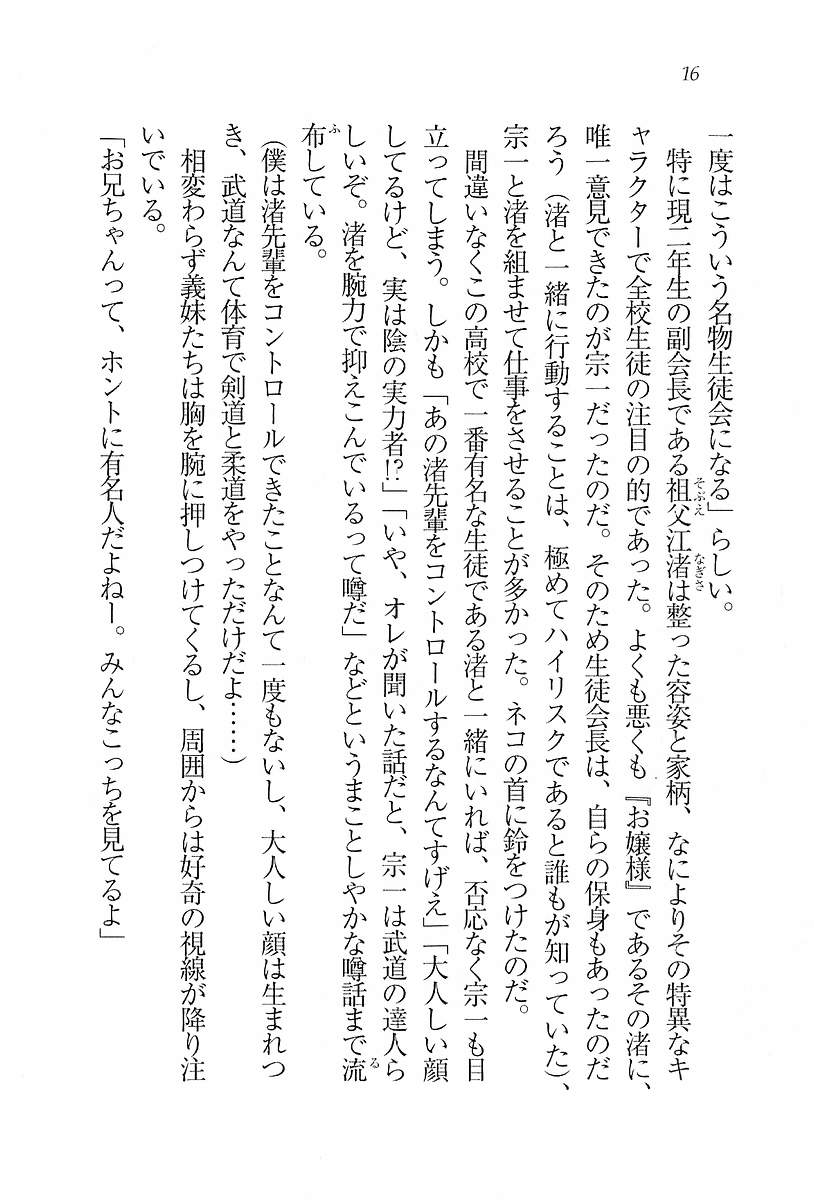 16
一度はこういう名物生徒会になる」らしい。
　特に現二年生の副会長である祖父江渚は整った容姿と家柄、なによりその特異なキ
ャラクターで全校生徒の注目の的であった。よくも悪くも『お嬢様』であるその渚に、
唯一意見できたのが宗一だったのだ。そのため生徒会長は、自らの保身もあったのだ
ろう（渚と一緒に行動することは、極めてハイリスクであると誰もが知っていた）、
宗一と渚を組ませて仕事をさせることが多かった。ネコの首に鈴をつけたのだ。
　間違いなくこの高校で一番有名な生徒である渚と一緒にいれば、否応なく宗一も目
立ってしまう。しかも「あの渚先輩をコントロールするなんてすげえ」「大人しい顔
してるけど、実は陰の実力者!?」「いや、オレが聞いた話だと、宗一は武道の達人ら
しいぞ。渚を腕力で抑えこんでいるって噂だ」などというまことしやかな噂話まで流
布している。
（僕は渚先輩をコントロールできたことなんて一度もないし、大人しい顔は生まれつ
き、武道なんて体育で剣道と柔道をやっただけだよ……）
　相変わらず義妹たちは胸を腕に押しつけてくるし、周囲からは好奇の視線が降り注
いでいる。
「お兄ちゃんって、ホントに有名人だよねー。みんなこっちを見てるよ」